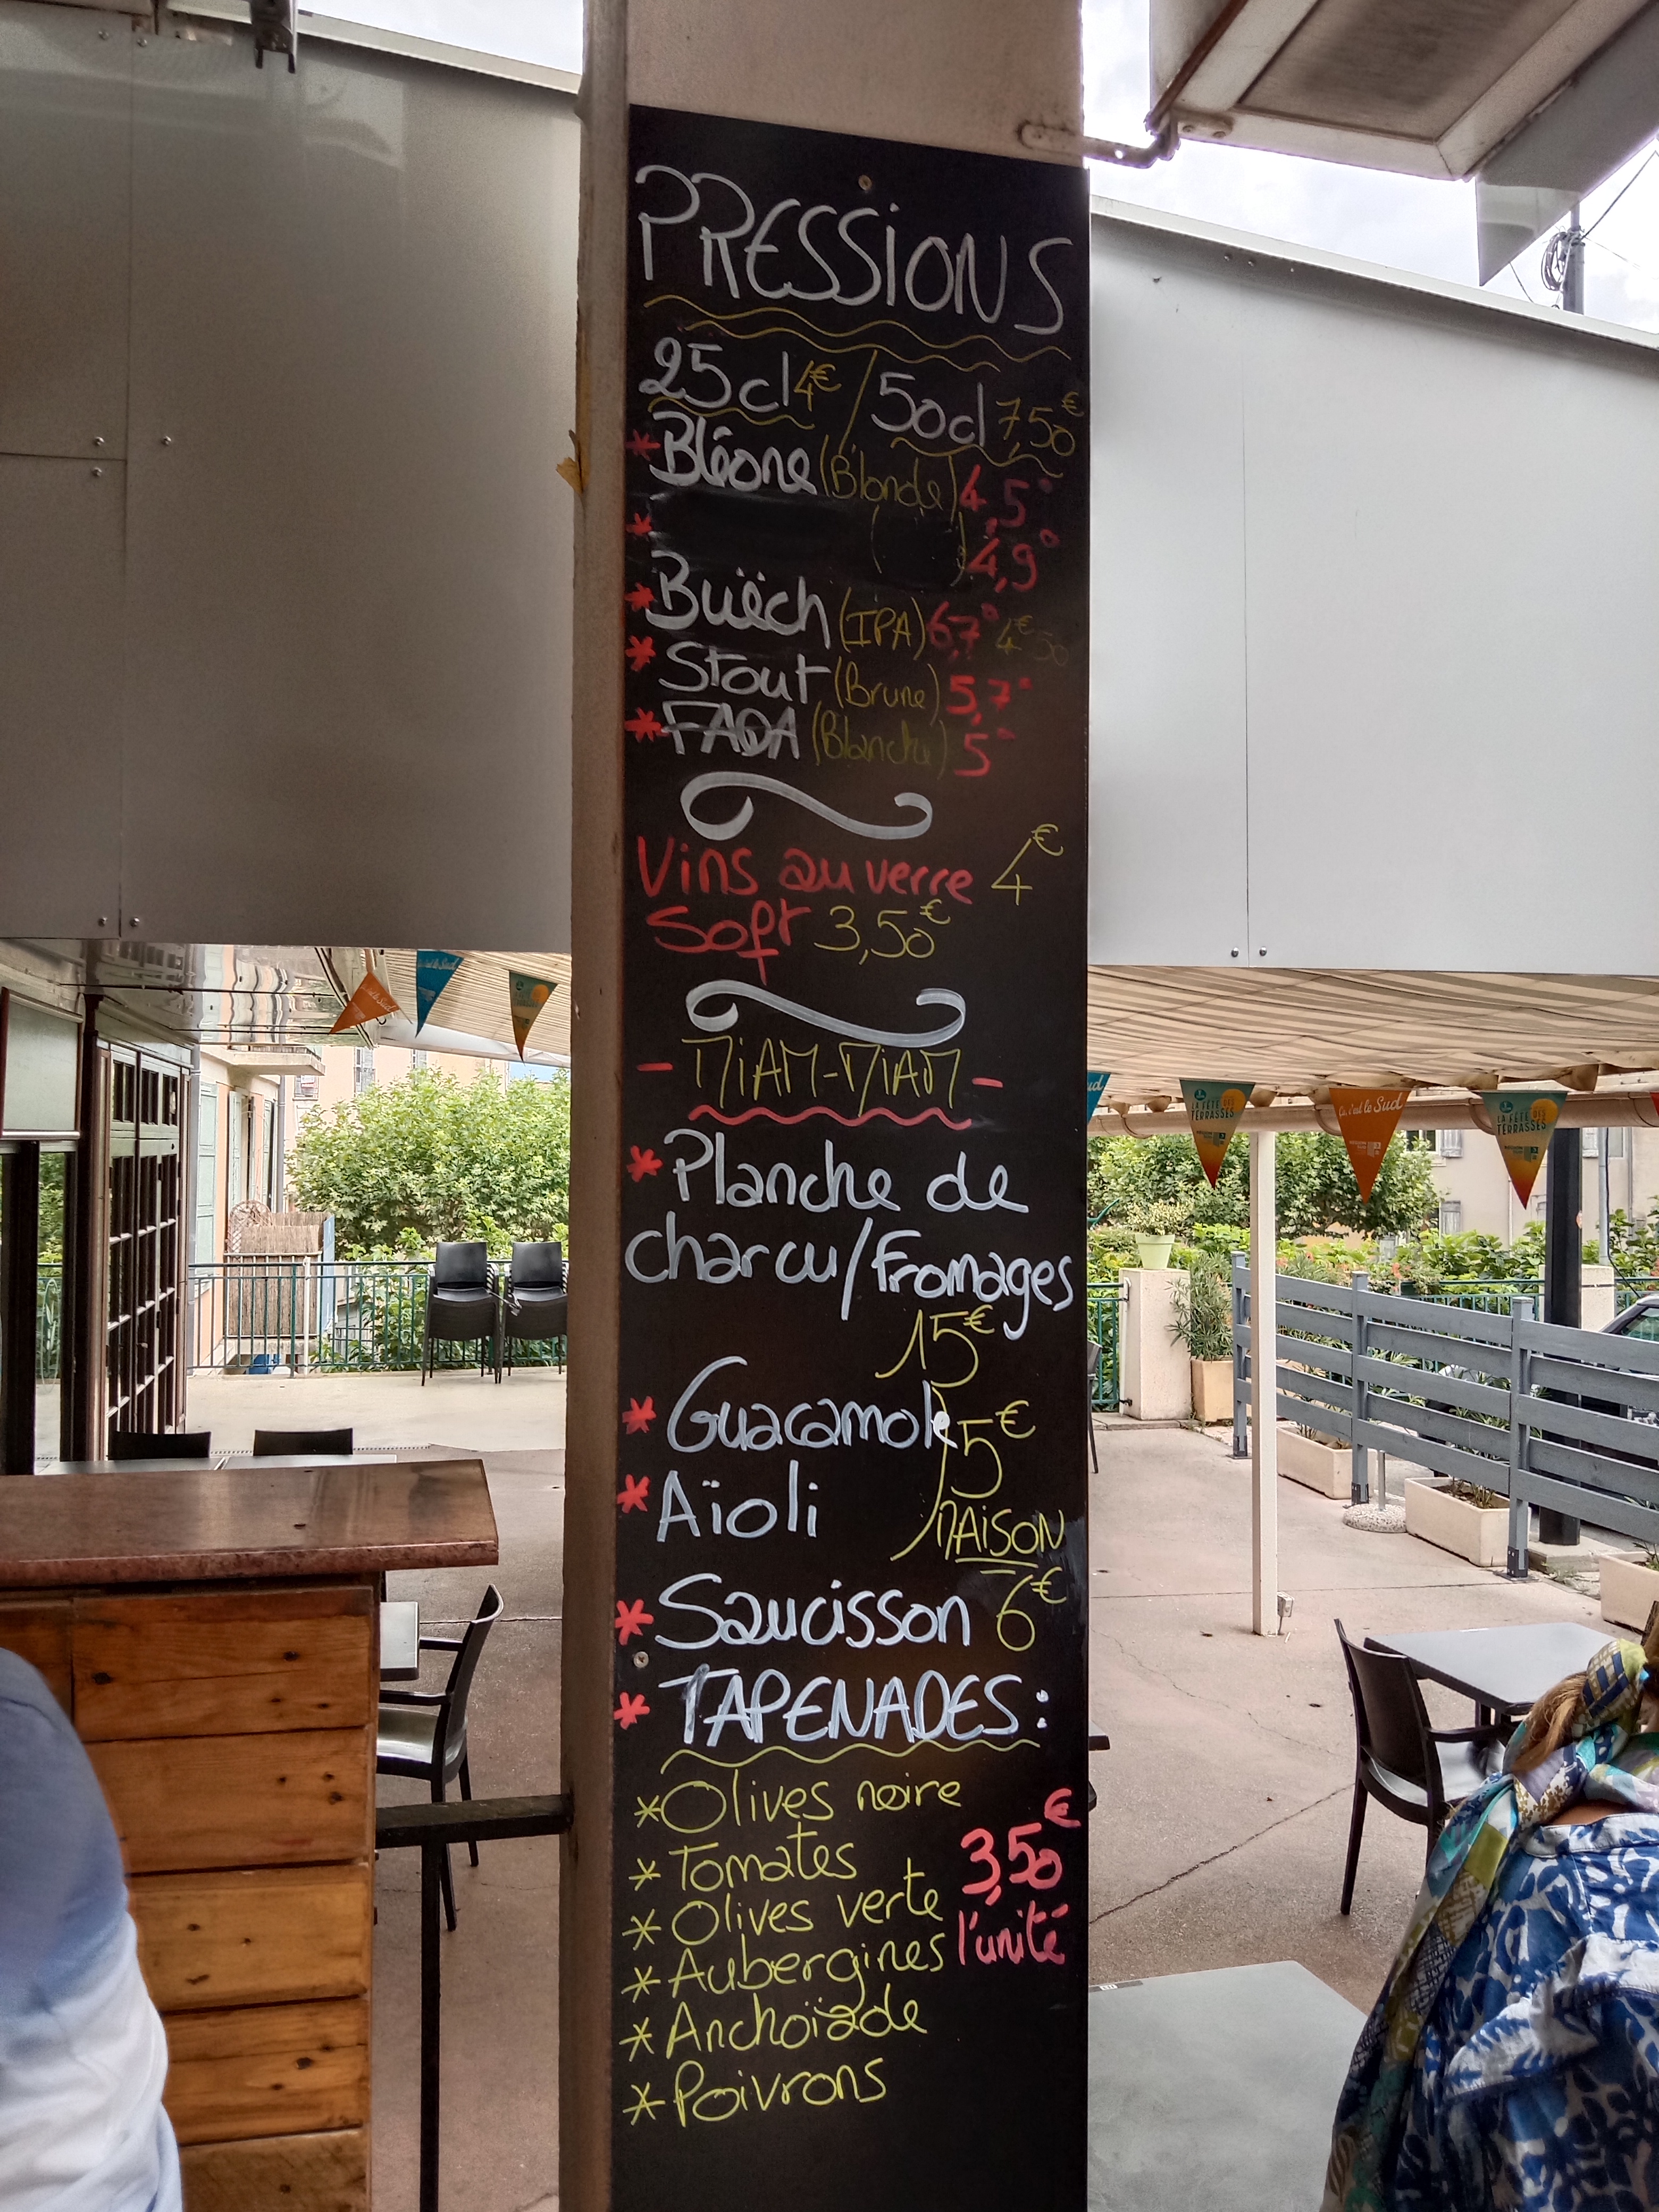 PRESSIONS
25cl 4€ / 50cl 7,50€
* Bléone (Blonde) 4,5°
* ( ) 4,9°
* Buëch (IPA) 6,7° 4€50
* Stout (Brune) 5,7°
* FADA (Blanche) 5°
Vins au verre 4€
Soft 3,50€
- MiAM-MiAM -
* Planche de
charcu/Fromages
15€
* Guacamole
5€
* Aïoli
MAiSON
* Saucisson 6€
* TAPENADES:
* Olives noire
* Tomates
* Olives verte
* Aubergines
* Anchoïade
* Poivrons
3,50€
l'unité
Ça, c'est le Sud
LA FÊTE DES
TERRASSES
Ça, c'est le Sud
LA FÊTE DES
TERRASSES